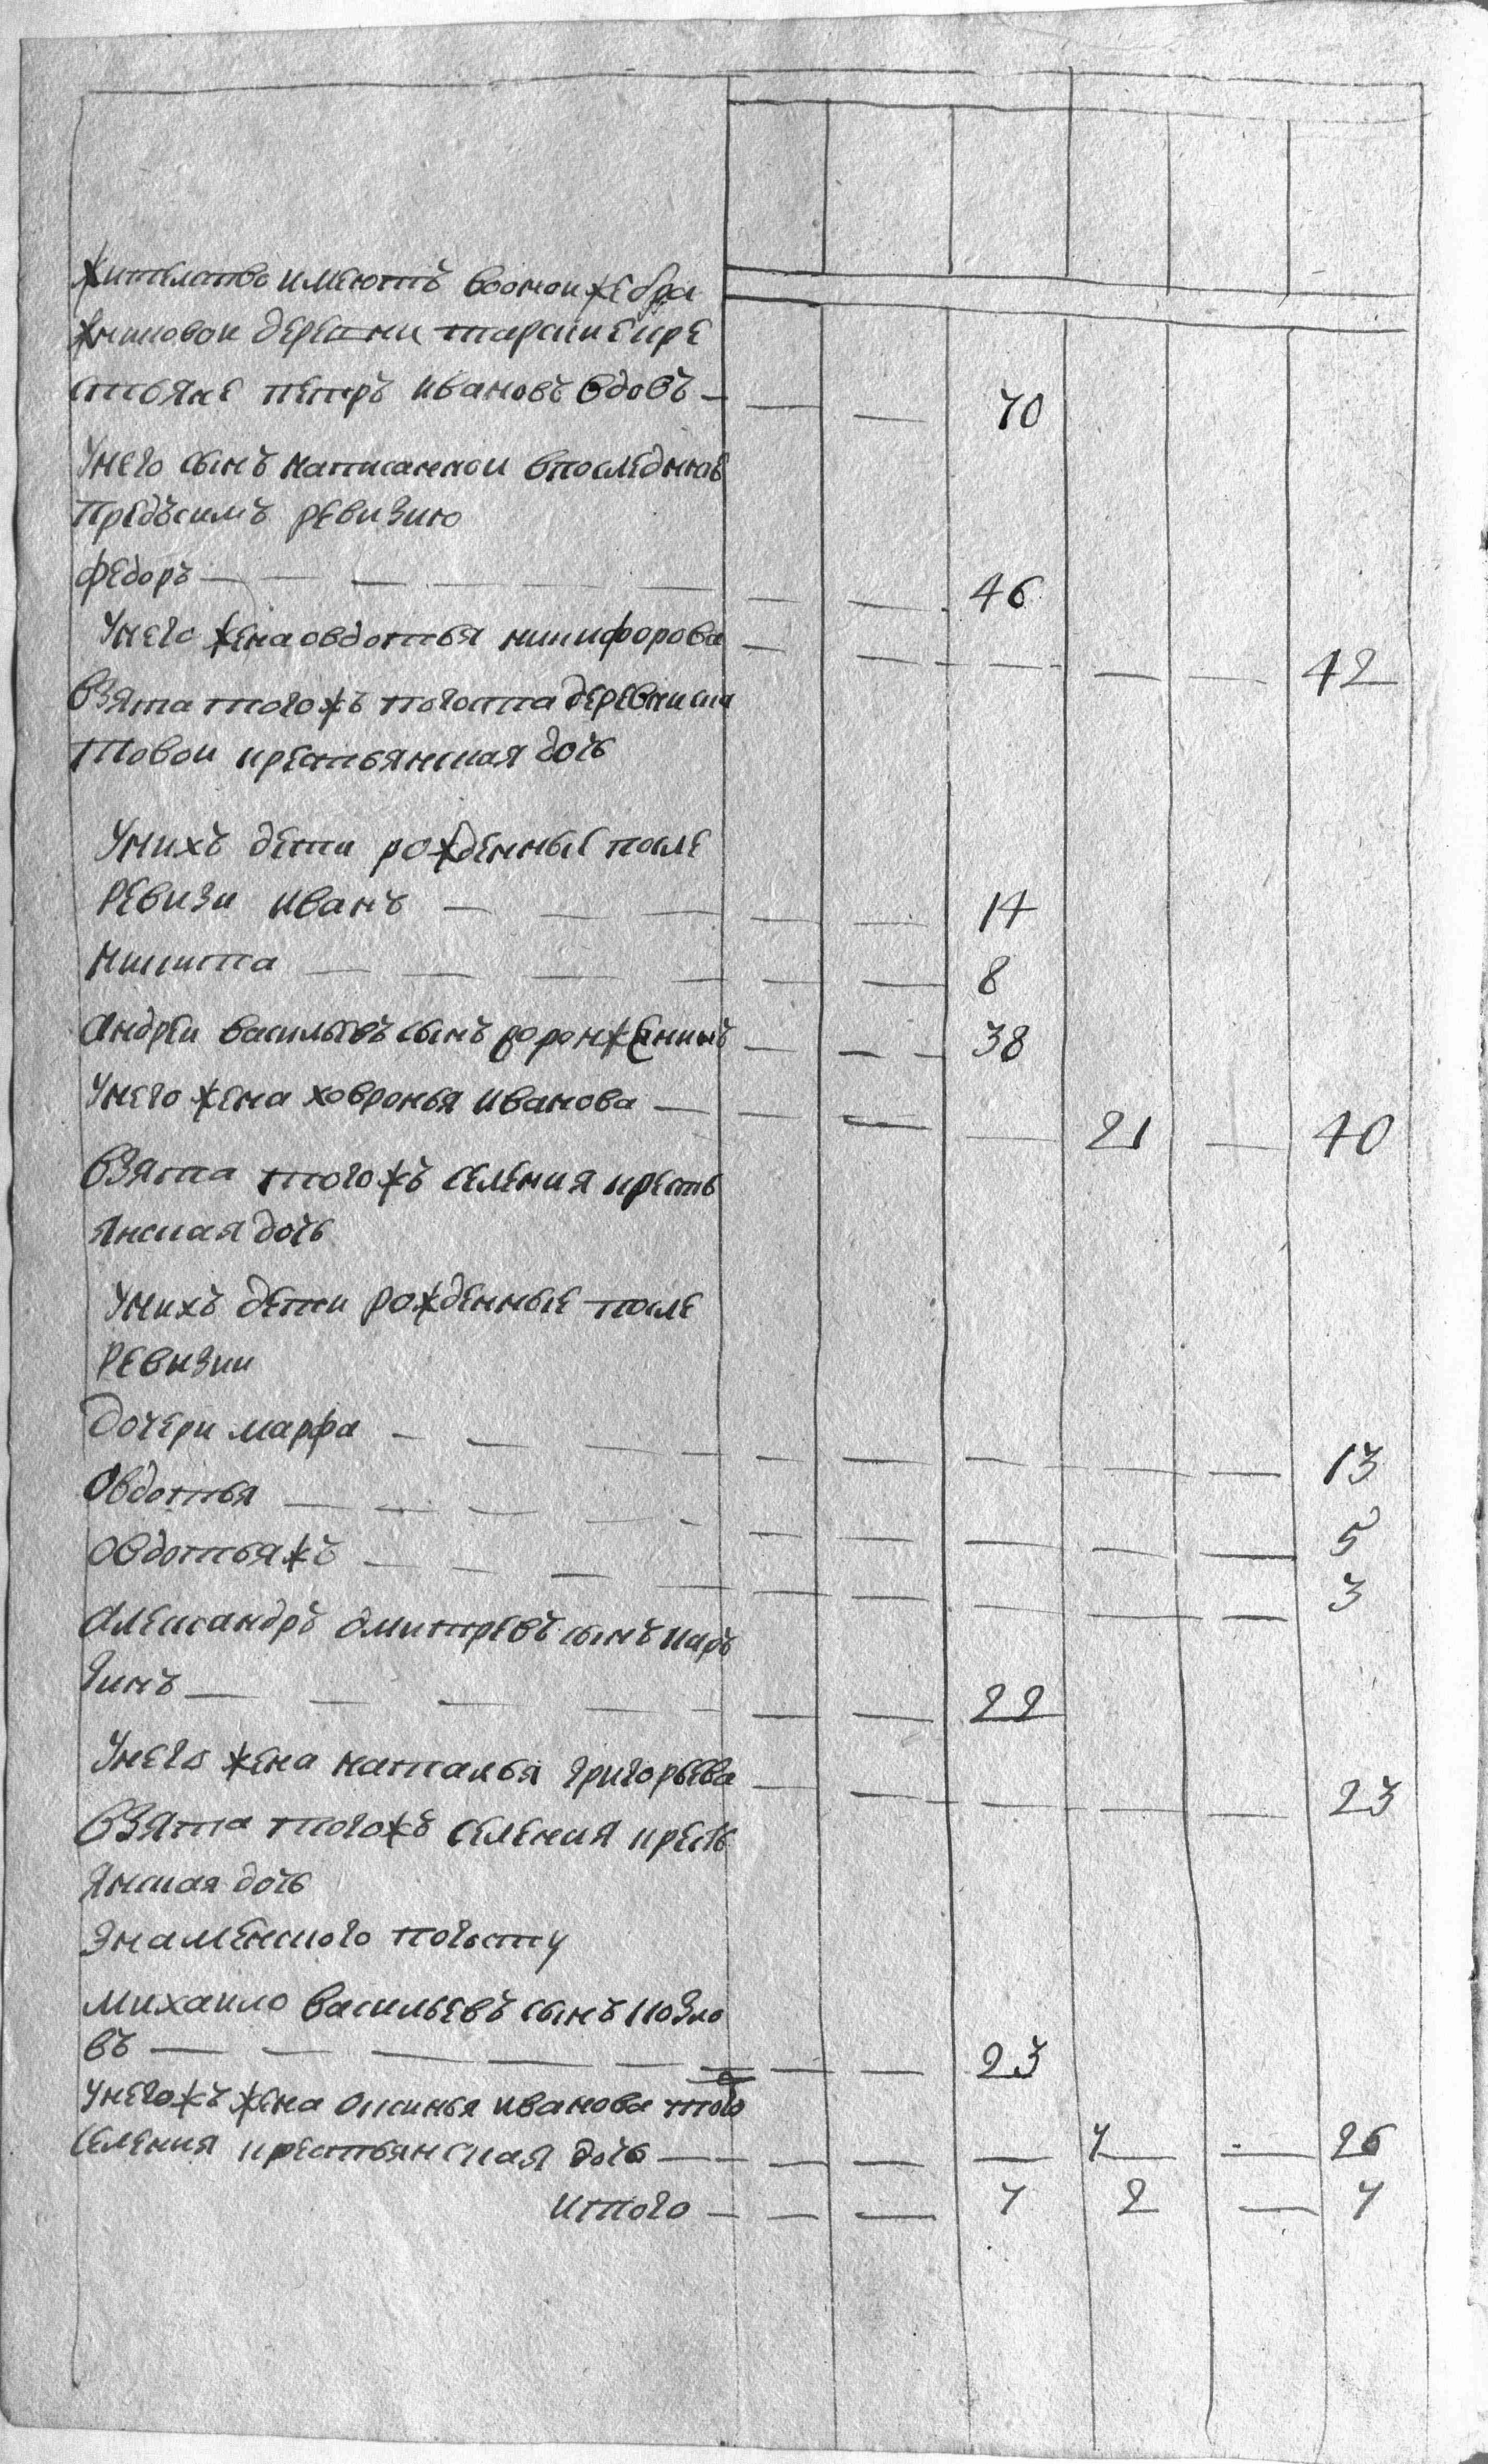 жителство имеютъ воонои же бра
жниковои деревни тарские кре
стьяне петръ ивановъ вдовъ — — — 70
унего сынъ написаннои впоследнюю
предъсимъ ревизию
федоръ — — — — — — — 46
унего жена овдотья никифорова — — — — — — 42
взята тогожъ погоста деревни
товои крестьянская дочь
унихъ дети рожденные после
ревизи иванъ — — — — — 14
никита — — — — — — 8
андреи васильевъ сынъ — — — 38
унего жена ховронья иванова — — — — 21 — 40
взята тогожъ селения кресть
янская дочь
унихъ дети рожденные после
ревизии
дочери марфа — — — — — — — — — 13
овдотья — — — — — — — — — 5
овдотьяжъ — — — — — — — — — 3
александръ дмитревъ сынъ каръ
зинъ — — — — — — — 22
унего жена наталья григорьева — — — — — 23
взята тогожъ селения кресть
янская дочь
знаменского погосту
михаило васильевъ сынъ козло
въ — — — — — — — — 23
унегожъ жена оксинья иванова того
селения крестьянская дочь — — — — — 4 — 26
итого — — — 7 2 — 7